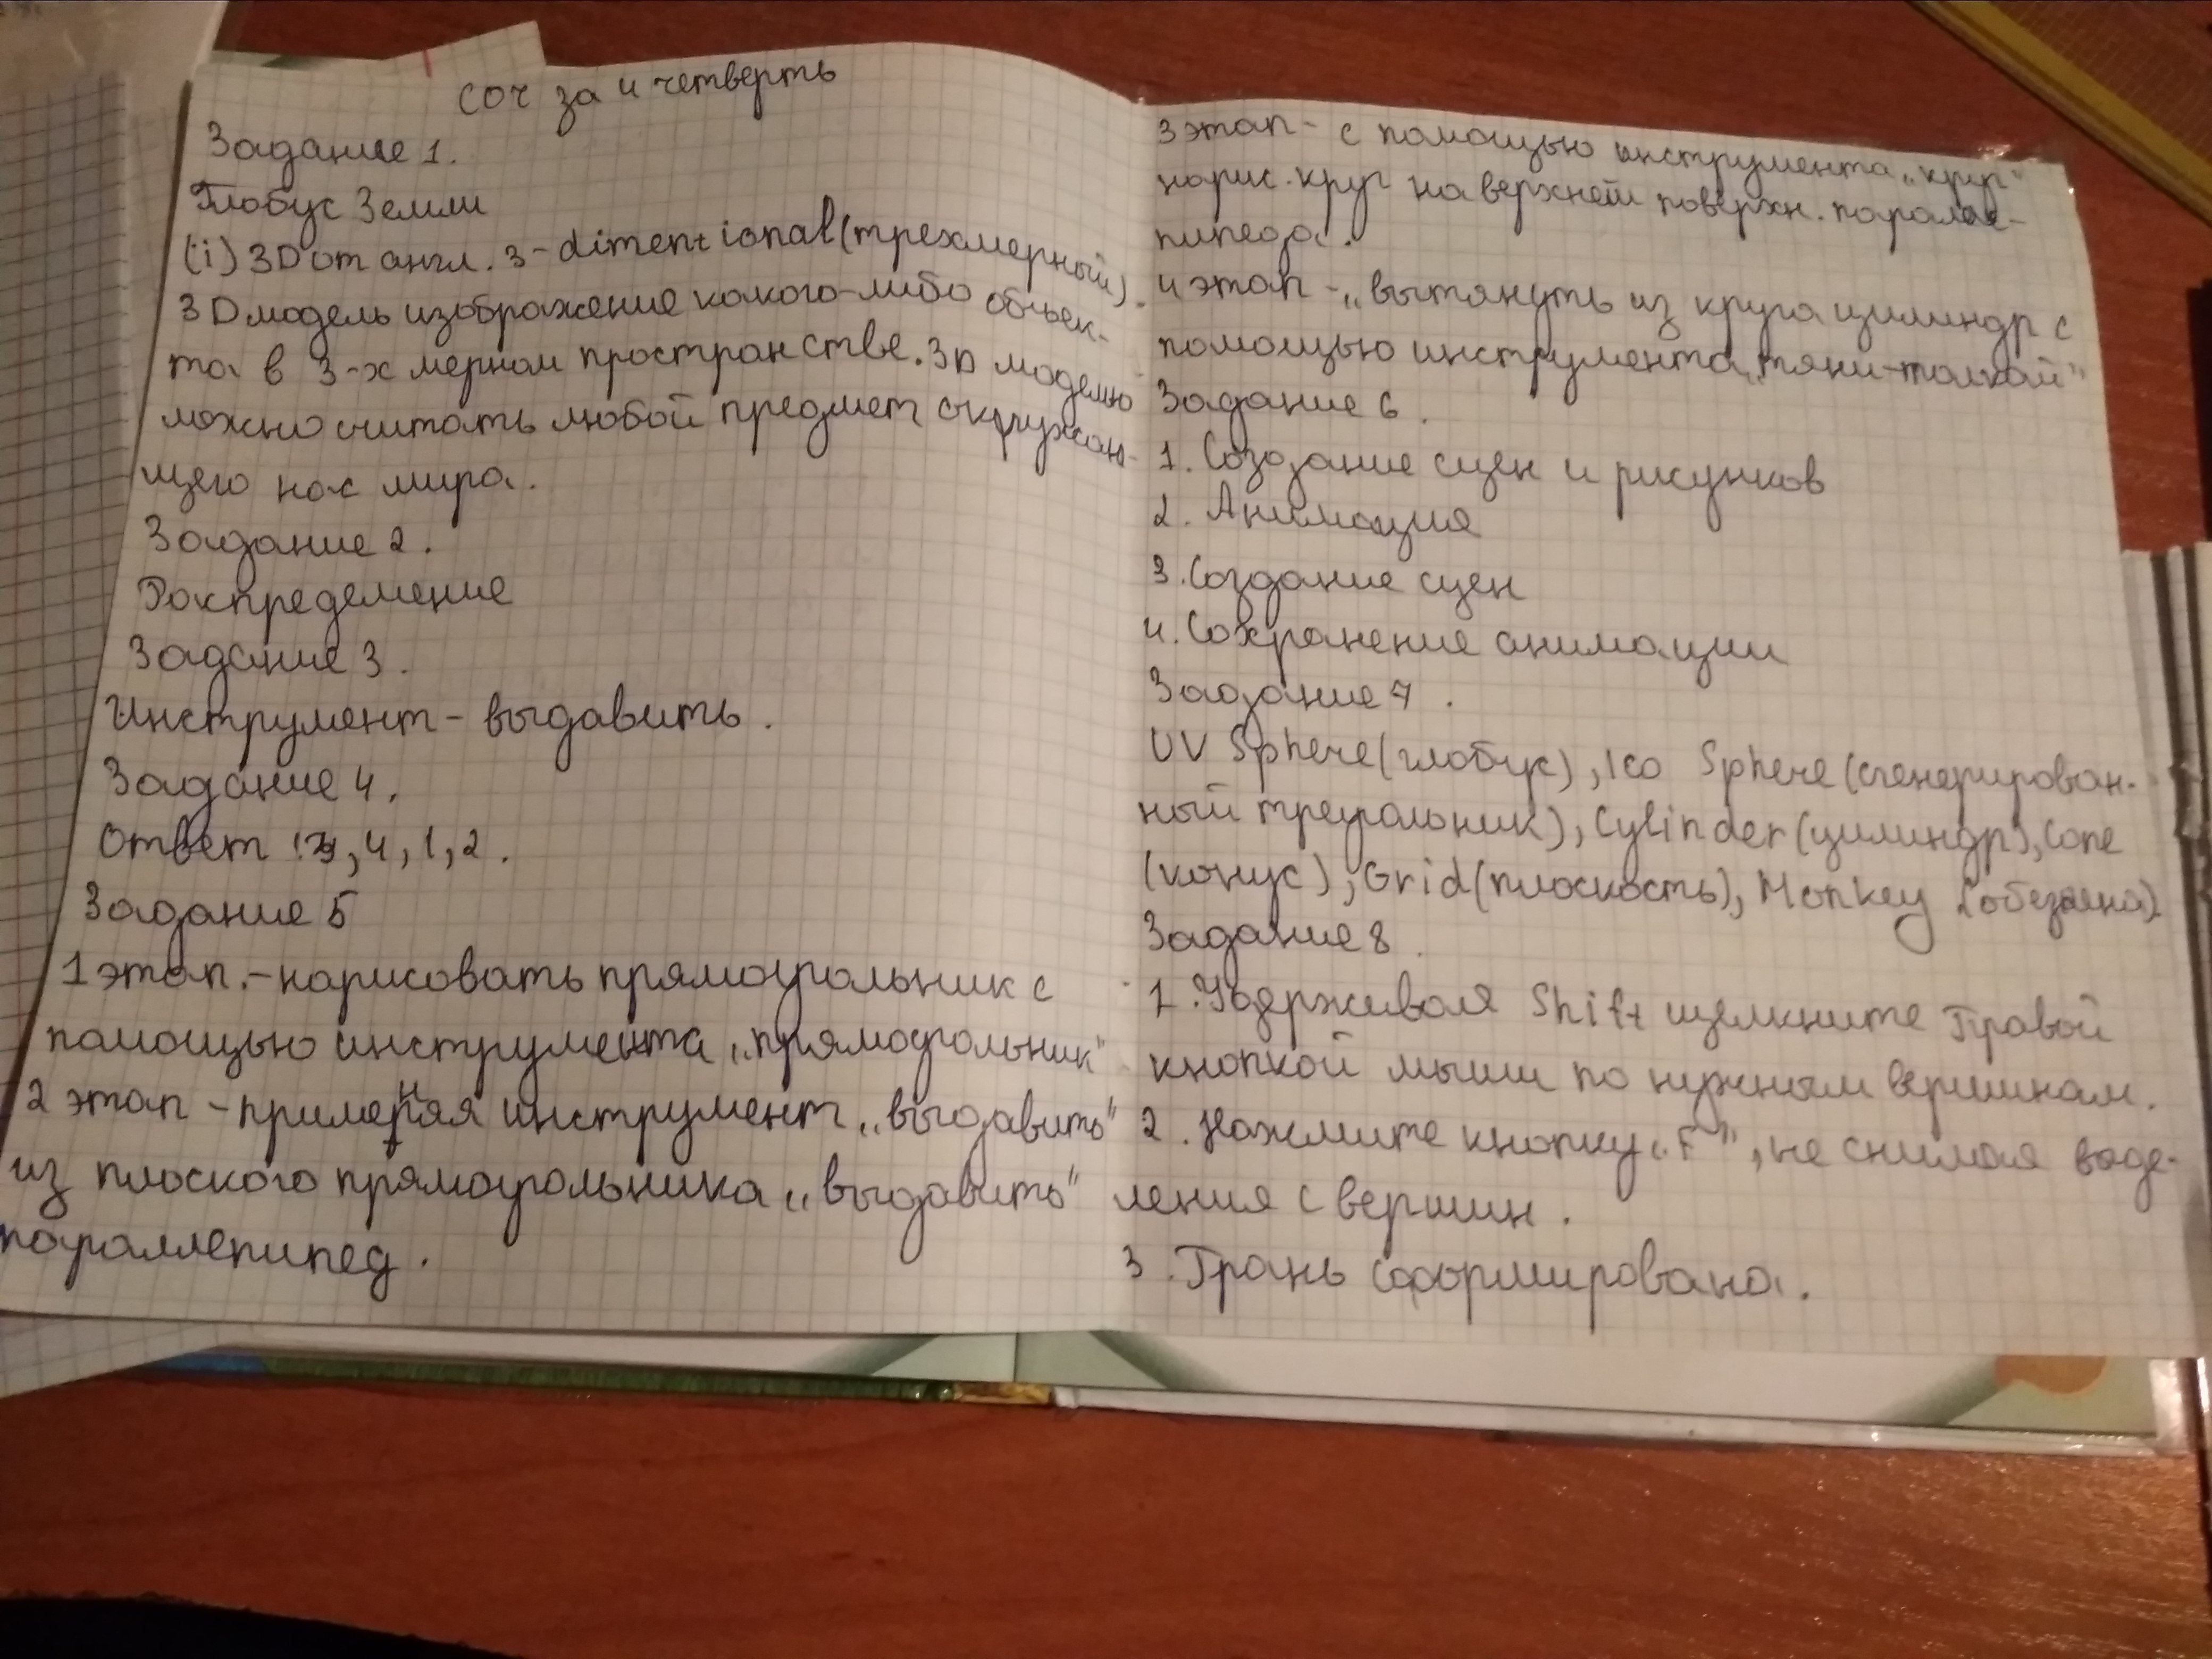 СОЧ за 4 четверть
Задание 1.
Глобус Земли
(i) 3D от англ. 3-dimentional (трехмерный).
3D модель изображение какого-либо объек-
та в 3-х мерном пространстве. 3D моделью
можно считать любой предмет окружаю-
щего нас мира.
Задание 2.
Распределение
Задание 3.
Инструмент - выдавить.
Задание 4.
Ответ: 3, 4, 1, 2.
Задание 5
1 этап. - нарисовать прямоугольник с
помощью инструмента „прямоугольник"
2 этап - применяя инструмент „выдавить"
из плоского прямоугольника „выдавить"
параллепипед.
3 этап - с помощью инструмента „круг"
нарис. круг на верхней поверхн. паралле-
пипеда.
4 этап - „вытянуть из круга цилиндр с
помощью инструмента „тяни-толкай"
Задание 6.
1. Создание сцен и рисунков
2. Анимация
3. Создание сцен
4. Сохранение анимации
Задание 7.
UV Sphere (глобус), Ico Sphere (сгенерирован-
ный треугольник), Cylinder (цилиндр), Cone
(конус), Grid (плоскость), Monkey (обезьяна).
Задание 8.
1. Удерживая Shift щелкните Правой
кнопкой мыши по нужным вершинам.
2. Нажмите кнопку „F", не снимая выде-
ления с вершин.
3. Грань сформирована.